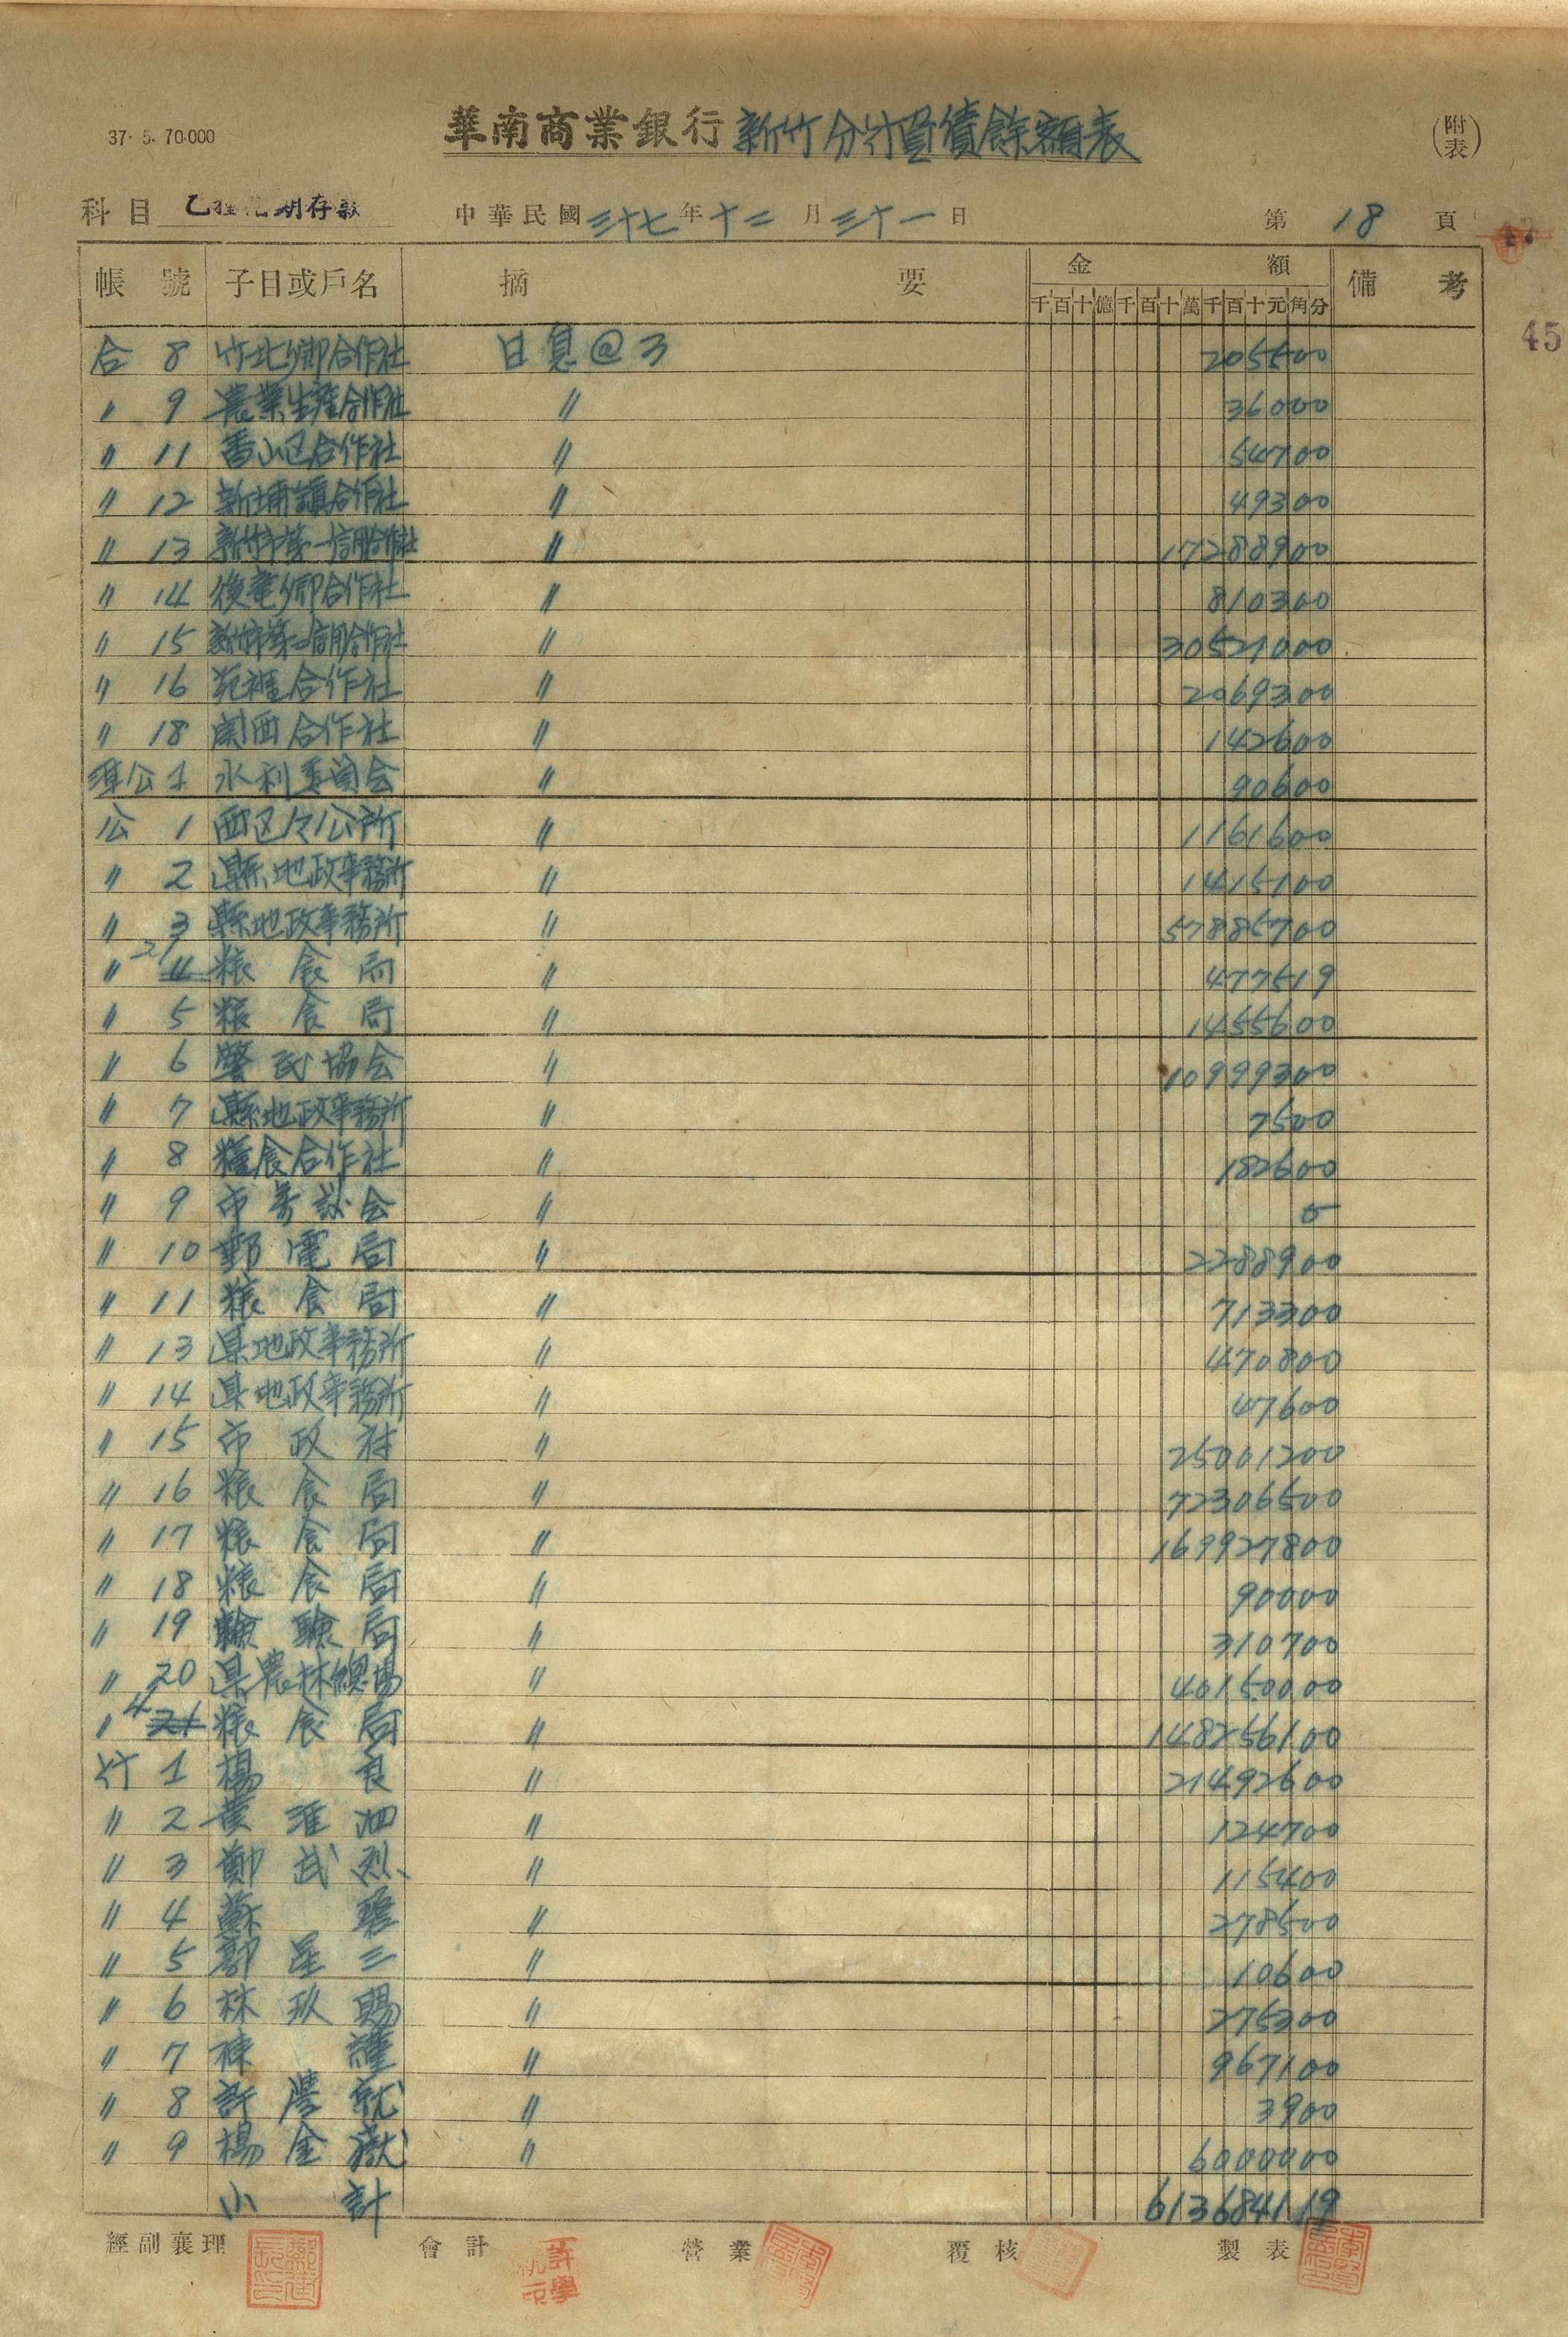 37. 5. 70.000
華南商業銀行新竹分行負債餘額表
(附表)
科目 乙種活期存款 中華民國三十七年十二月三十一日 第18頁
45
帳號 子目或戶名 摘要 金額 備考
千百十億千百十萬千百十元角分
合 8 竹北鄉合作社 日息@3 205500
〃 9 農業生産合作社 〃 36000
〃 11 香山区合作社 〃 54700
〃 12 新埔鎮合作社 〃 49300
〃 13 新竹市第一信用合作社 〃 17288900
〃 14 後竜鄉合作社 〃 810300
〃 15 新竹市第二信用合作社 〃 30521000
〃 16 苑裡合作社 〃 2069300
〃 18 関西合作社 〃 142600
準公 1 水利委員会 〃 90600
公 1 西区区公所 〃 1161600
〃 2 縣地政事務所 〃 1415100
〃 3 縣地政事務所 〃 57885700
〃 21 粮食局 〃 477519
〃 5 粮食局 〃 1455600
〃 6 警民協会 〃 10999300
〃 7 縣地政事務所 〃 7500
〃 8 糧食合作社 〃 182600
〃 9 市参議会 〃 0
〃 10 郵電局 〃 2288900
〃 11 粮食局 〃 713300
〃 13 県地政事務所 〃 470800
〃 14 県地政事務所 〃 47600
〃 15 市政府 〃 25001200
〃 16 粮食局 〃 72306500
〃 17 粮食局 〃 169927800
〃 18 粮食局 〃 90000
〃 19 驗局 〃 310700
〃 20 県農林總場 〃 40150000
〃 4 粮食局 〃 148256100
竹 1 楊良 〃 21492600
〃 2 黄淮泗 〃 124700
〃 3 鄭武烈 〃 115400
〃 4 蘇 〃 278500
〃 5 鄭星三 〃 10600
〃 6 林玖賜 〃 275300
〃 7 陳謹 〃 967100
〃 8 許就 〃 3900
〃 9 楊金嶽 〃 6000000
小計 613684119
經副襄理 會計 營業 覆核 製表